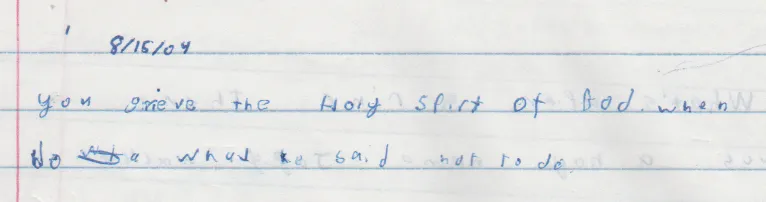 8/15/04
you grieve the Holy Spirt of God. when
do what he said not to do